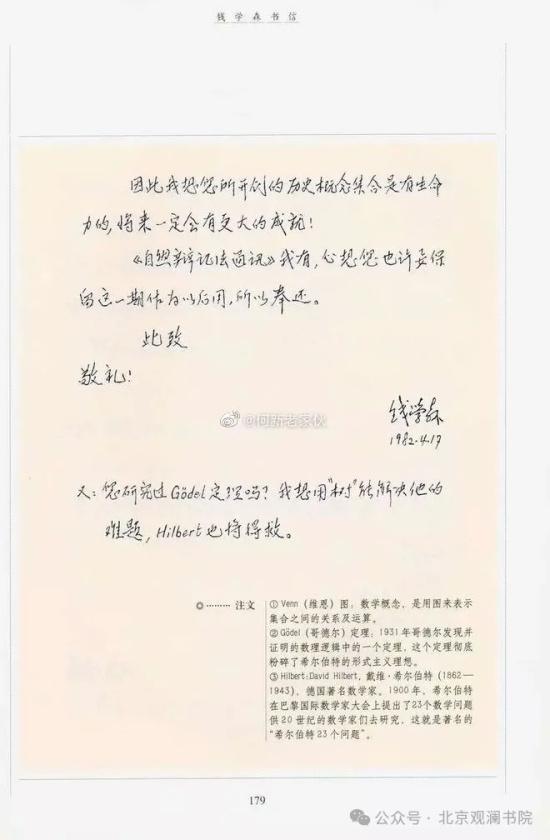 钱学森书信
因此我想您所开创的历史概念集合是有生命
力的,将来一定会有更大的成就!
《自然辩证法通讯》我有,心想您也许要保
留这一期作为以后用,所以奉还。
此致
敬礼!
钱学森
1982.4.17
@何新老家伙
又:您研究过Gödel定理吗?我想用“树”能解决他的
难题,Hilbert也将得救。
注文
① Venn(维恩)图:数学概念,是用图来表示
集合之间的关系及运算。
② Gödel(哥德尔)定理:1931年哥德尔发现并
证明的数理逻辑中的一个定理,这个定理彻底
粉碎了希尔伯特的形式主义理想。
③ Hilbert:David Hilbert,戴维·希尔伯特(1862—
1943),德国著名数学家。1900年,希尔伯特
在巴黎国际数学家大会上提出了23个数学问题
供20世纪的数学家们去研究,这就是著名的
“希尔伯特23个问题”。
179
公众号·北京观澜书院